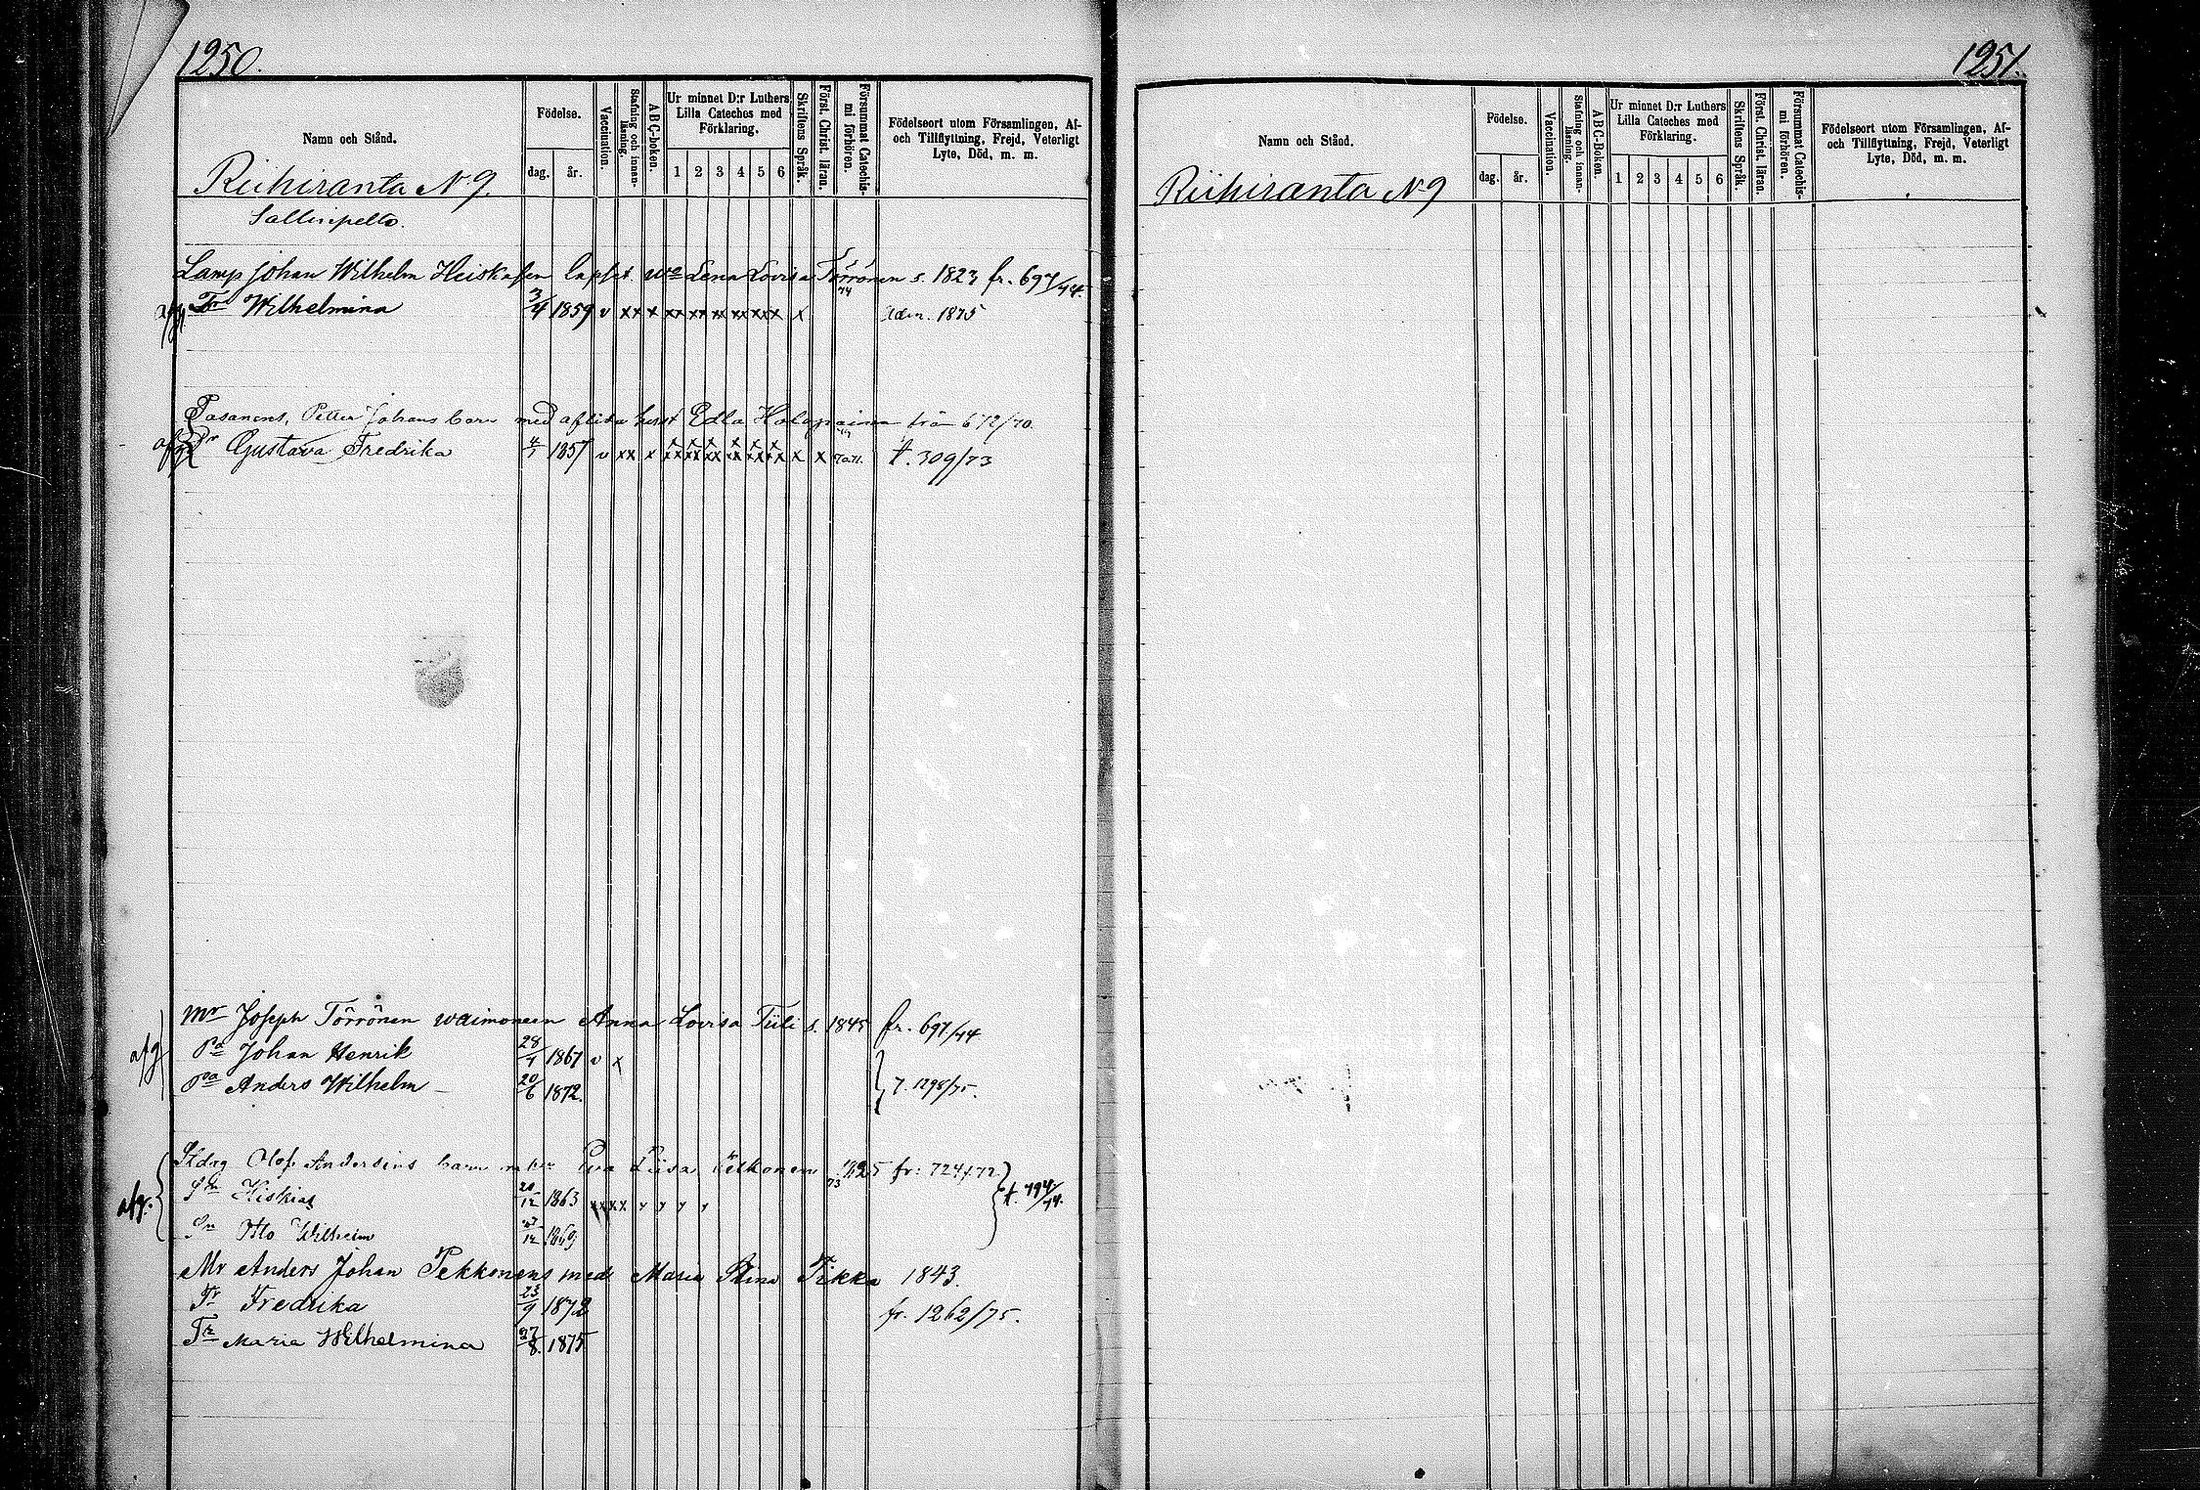 1250.
Namn och Stånd.
Födelse.
dag. år.
Vaccination.
Stafning och innan-läsning.
A B C-boken.
Ur minnet D:r Luthers Lilla Cateches med Förklaring.
1 2 3 4 5 6
Skriftens Språk.
Först. Christ. läran.
Försummat Catechis-mi förhören.
Födelseort utom Församlingen, Af- och Tillflyttning, Frejd, Veterligt Lyte, Död, m. m.
Riihiranta N 9.
Sallinpelto.
Lamp Johan Wilhelm Heiskasen lapset. Lena Lovisa Törrönen s. 1823 fr. 697/74.
Tr Wilhelmina 3/4 1859 v xx x xx xx xx xx xx xx x 1875
Tasanens, Petter Johans barn med aflidne Edla Holopainen från 672/70.
afg Gustava Fredrika 1857 v xx x x x t. 309/73
Mr Joseph Törrönen waimoneen Anna Lovisa Tiili s. 1845 fr. 697/74
afg Pa Johan Henrik 28/4 1867 v x
Pa Anders Wilhelm 20/6 1872. 1298/75.
Olof Andersins barn Eva Liisa Pelkonen 1825 fr: 724/72
afg. Sn Hiskias 20/12 1863 t. 794/74.
Sn Otto Wilhelm 1869
Mr Anders Johan Pekkonens med Maria Stina Tikka 1843.
Tr Fredrika 23/9 1872 fr. 1262/75.
Tr Maria Wilhelmina 27/8. 1875
1251.
Namn och Stånd.
Födelse.
dag. år.
Vaccination.
Stafning och innan-läsning.
A B C-Boken.
Ur minnet D:r Luthers Lilla Cateches med Förklaring.
1 2 3 4 5 6
Skriftens Språk.
Först. Christ. läran.
Försummat Catechis-mi förhören.
Födelseort utom Församlingen, Af- och Tillflyttning, Frejd, Veterligt Lyte, Död, m. m.
Riihiranta N 9